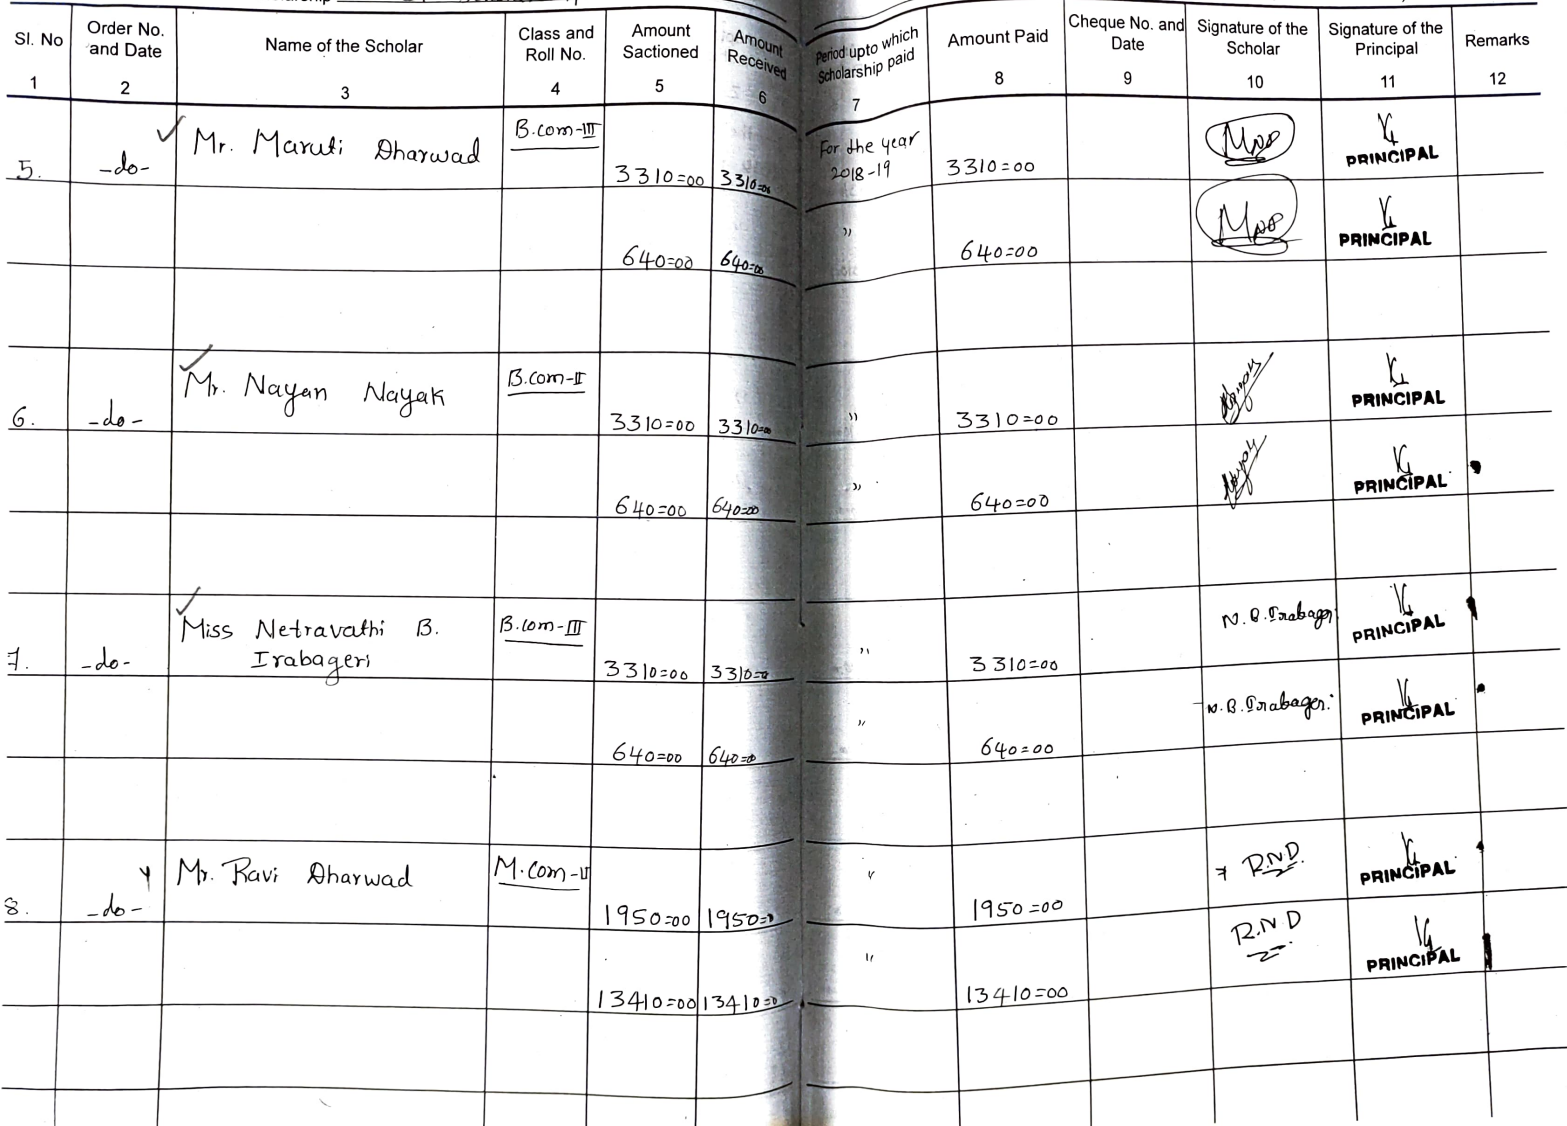 Sl. No Order No. and Date Name of the Scholar Class and Roll No. Amount Sactioned Amount Received Period upto which Scholarship paid Amount Paid Cheque No. and Date Signature of the Scholar Signature of the Principal Remarks
1 2 3 4 5 6 7 8 9 10 11 12
5. -do- Mr. Maruti Dharwad B.com-III 3310=00 3310=00 For the year 2018-19 3310=00 PRINCIPAL
640=00 640=00 " 640=00 PRINCIPAL
6. -do- Mr. Nayan Nayak B.com-II 3310=00 3310=00 " 3310=00 PRINCIPAL
640=00 640=00 " 640=00 PRINCIPAL
7. -do- Miss Netravathi B. B.com-III N.B.Irabageri PRINCIPAL
Irabageri 3310=00 3310=0 " 3310=00
640=00 640=00 " 640=00 N.B.Irabageri PRINCIPAL
8. -do- Mr. Ravi Dharwad M.com-II 1950=00 1950=0 " 1950=00 R.N.D. PRINCIPAL
13410=00 13410=0 " 13410=00 R.N.D PRINCIPAL